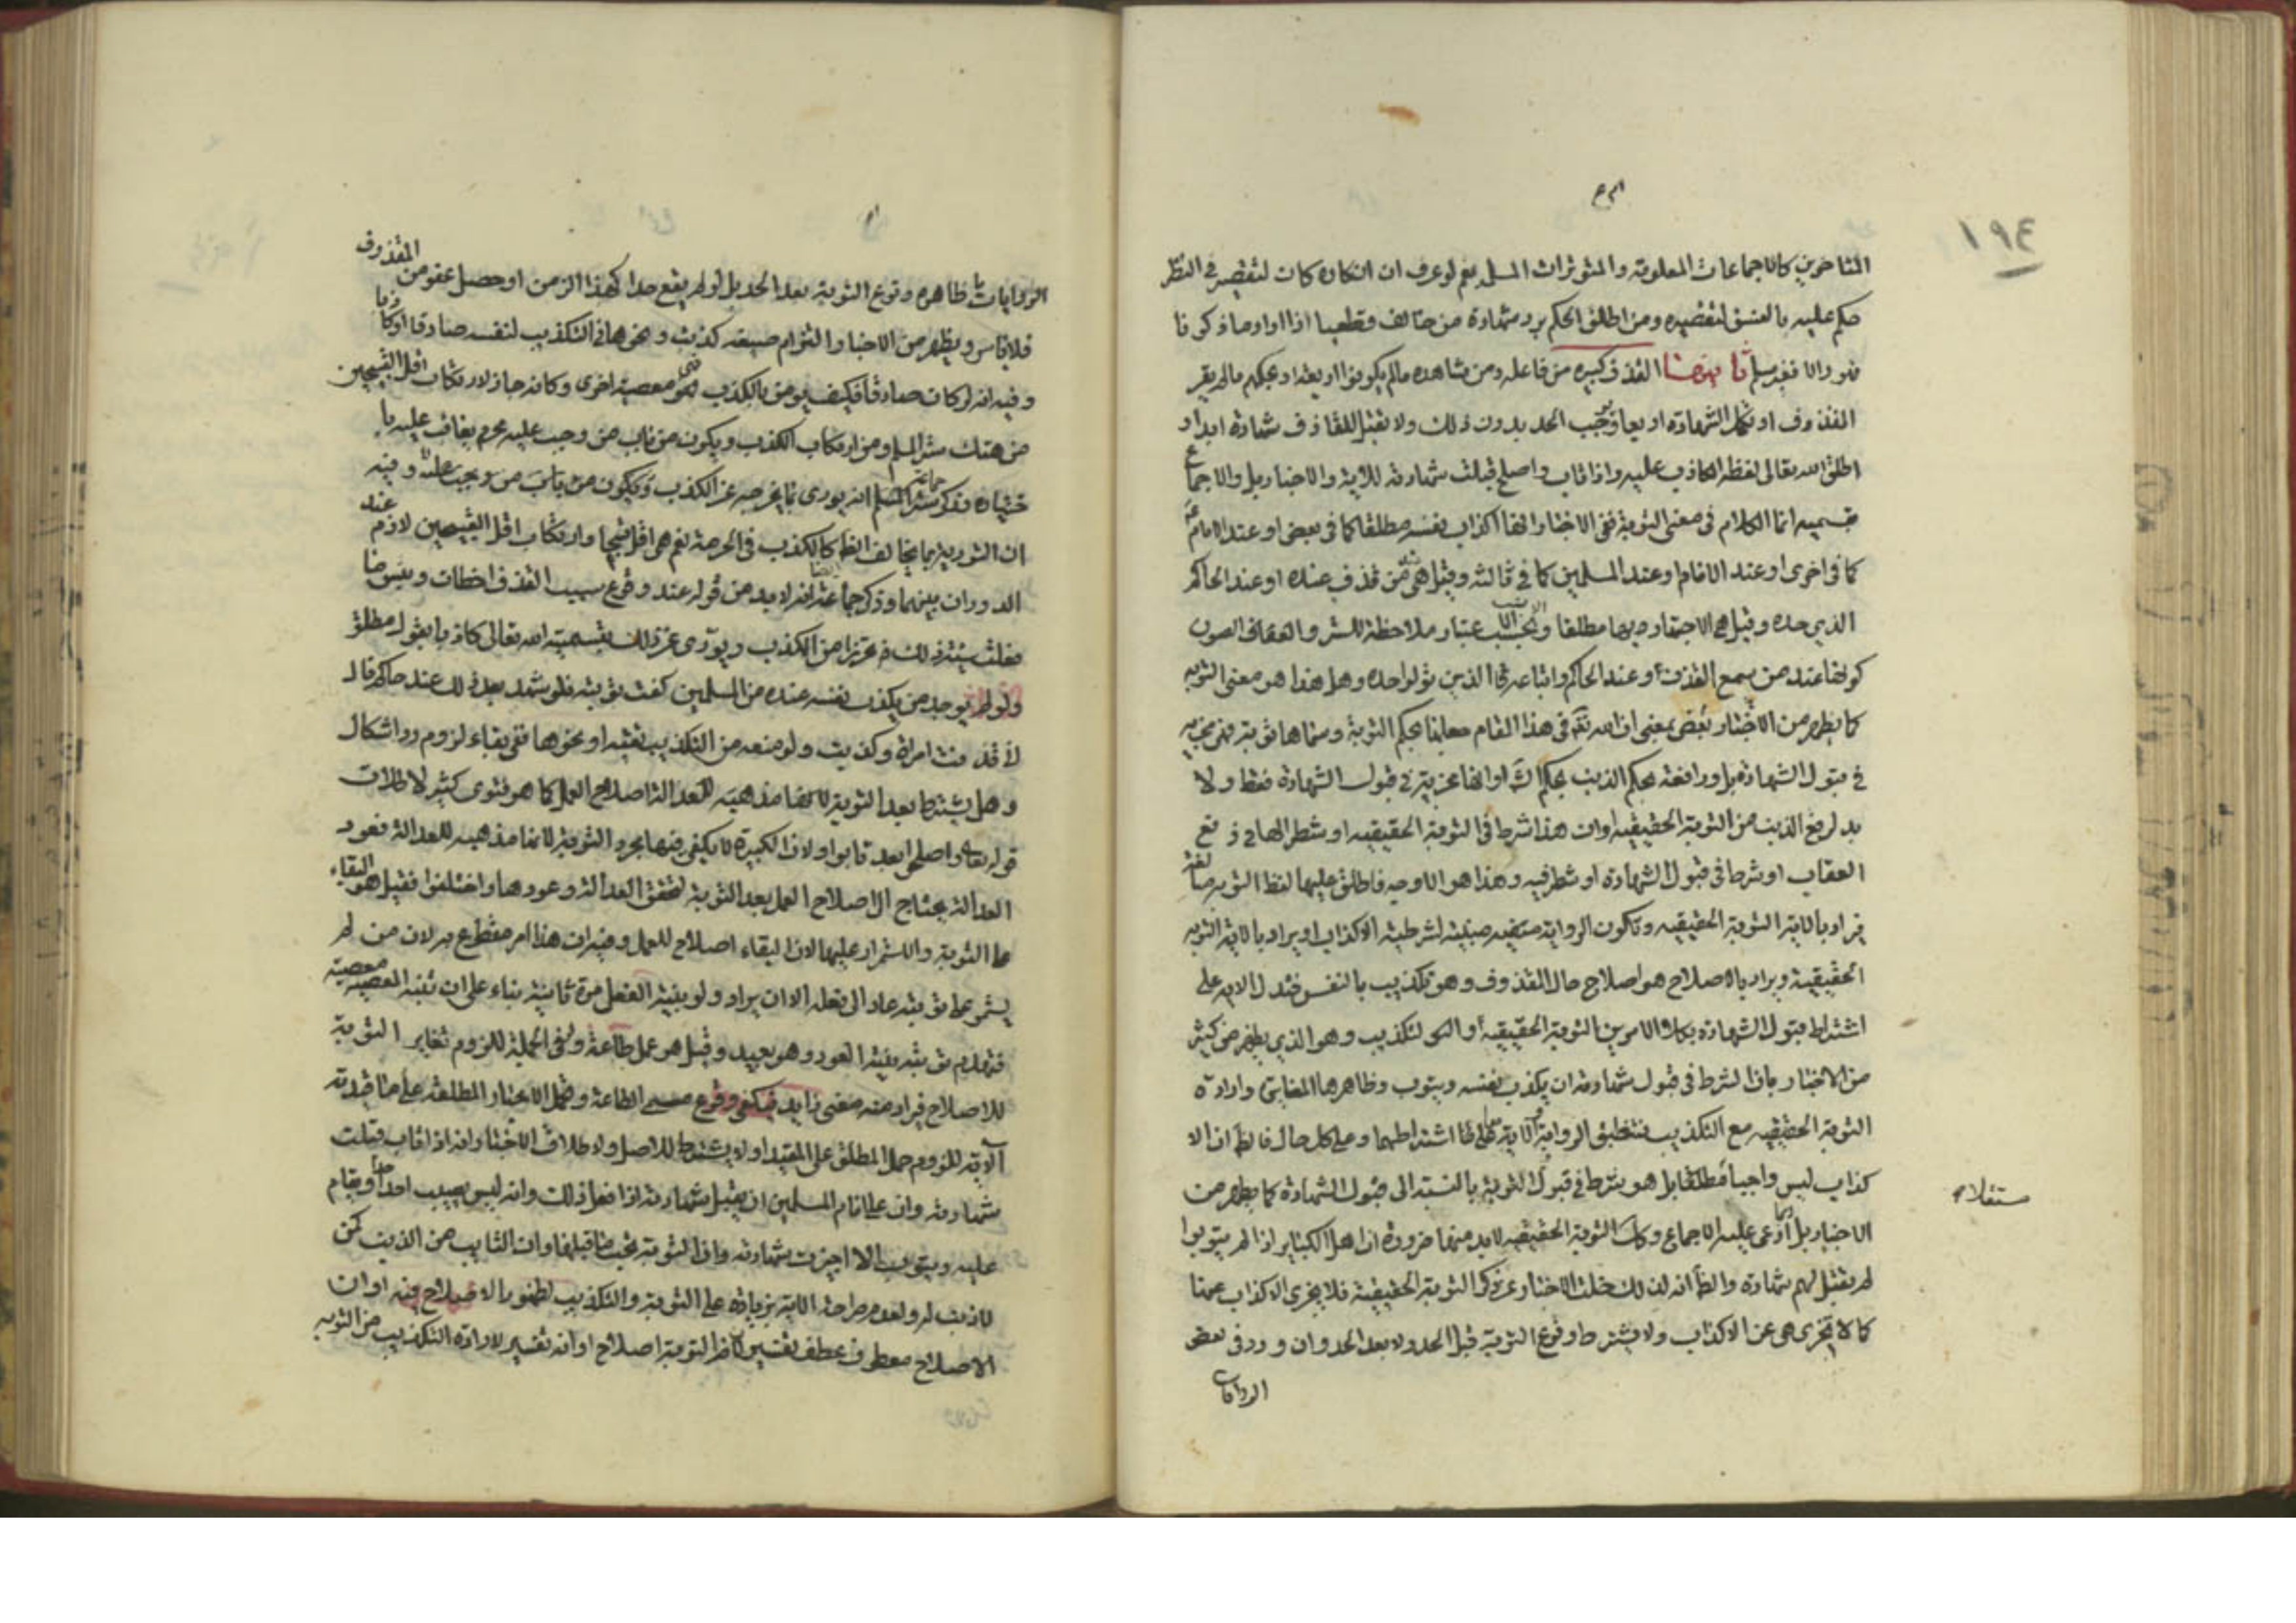 ١٩٤
المتاخرين كالاجماعات المعلومة والمتواترات المسلم نعم لو عرف ان انكاره كان لتقصير في النظر
حكم عليه بالفسق لتقصيره ومن اطلق الحكم برد شهادة من خالف قطعيا اذا اراد ما ذكرنا
فهو والا فغير مسلم ثانيهما القذف كبيرة من فاعله ومن شاهده مالم يكونوا اربعة او عليهم بالم يقر
المقذوف او تكمل الشهادة اربعا ويجب الحد بدون ذلك ولا تقبل للقاذف شهادة ابدا و
اطلق الله تعالى لفظ الكاذب عليه واذا تاب واصلح قبلت شهادته للآية والاخبار بل والاجماع
بقسميه انما الكلام في معنى التوبة ففي الاخبار انها اكذاب نفسه مطلقا كما في بعض او عند الامام
كما في اخرى او عند الامام وعند المسلمين كما في ثالثة وقيل هي من قذف عنده او عند الحاكم
الذي حده وقيل هي الاجتهار وبها مطلقا وبحسب الاعتبار ملاحظة للستر والعفاف الصون
كونها عند من سمع القذف او عند الحاكم واتباعه الذين تولوا حده وهل هذا هو معنى التوبة
كما يظهر من الاخبار بعض بمعنى ان الله في هذا المقام بحكم التوبة وسماها توبة فهي مجزية
في قبول الشهادة بل ورافعة بحكم الذنب او انها مجزية في قبول الشهادة فقط ولا
بد لرفع الذنب من التوبة الحقيقية او ان هذا شرط في التوبة الحقيقية او شطر لها في رفع
العقاب او شرط في قبول الشهادة او شطر فيه وهذا هو الاوجه فاطلق عليها لفظ التوبة
فيراد بالاية التوبة الحقيقية وتكون الرواية مبينة لشرطية الاكذاب او يراد بالاية التوبة
الحقيقية ويراد بالاصلاح هو اصلاح حال المقذوف وهو تكذيب بالنفس فتدل الاية على
اشتراط قبول الشهادة بكلا الامرين التوبة الحقيقية والتكذيب وهو الذي يظهر من كثير
من الاخبار بان الشرط في قبول شهادته ان يكذب نفسه ويتوب وظاهرها المغايرة وارادة
التوبة الحقيقية مع التكذيب فتنطبق الرواية والآية على اشتراطهما وعلى كل حال فالظ ان الا
كذاب ليس واجبا مطلقا بل هو شرط في قبول التوبة بالنسبة الى قبول الشهادة كما يظهر من
الاخبار بل ربما ادعى عليه الاجماع وكك التوبة الحقيقية لابد منها ضرورة ان اهل الكباير اذا لم يتوبوا
لم تقبل لهم شهادة والظ انه لذلك خلت الاخبار عن ذكر التوبة الحقيقية فلا يجزى الاكذاب عنها
كما لا تجزى هي عن الاكذاب ولا يشترط وقوع التوبة قبل الحد ولا بعد الحد وان ورد في بعض
الروايات
الروايات ما ظاهره وقوع التوبة بعد الحد بل لو لم يقع حد كهذا الزمن او حصل عفو من المقذوف
فلا باس ويظهر من الاخبار التزام صيغة كذبت ونحوها في التكذيب لنفسه صادقا او كاذبا
وفيه انه لو كان صادقا فكيف يومر بالكذب فهي معصية اخرى وكانه جاز لارتكاب اقل القبيحين
من هتك ستر المسلم ومن ارتكاب الكذب ويكون من باب من وجب عليه محرم يعاقب عليه
ختياره وذكر جماعة انه يورى بما يخرجه عن الكذب ويكون من باب من وجب عليه وفيه
ان التورية بما يخالف الظ كالكذب في الحرمة نعم هي اقل قبحا وارتكاب اقل القبيحين لازم عند
الدوران بينهما وذكر جماعة انه لابد من قوله عند وقوع سبب القذف اخطات
فقلت ستر ذلك تحرزا من الكذب ويورى عن ذلك بتسمية الله تعالى كاذبا بقول مطلق
ولو لم يوجد من يكذب نفسه عنده من المسلمين كفت توبته فلو شهد بعد ذلك عند حاكم قال
لا قذفت امراة وكذبت ولو منعه من التكذيب تقية او نحوها ففي بقاء لزوم رد اشكال
وهل يشترط بعد التوبة لانها مذهبة للعدالة اصلاح العمل كما هو فتوى كثير لاطلاق
قوله تعالى واصلحوا بعد تابوا ولان الكبيرة لا يكفي فيها مجرد التوبة لانها مذهبة للعدالة فعود
العدالة يحتاج الى اصلاح العمل بعد التوبة لتحقق العدالة وعودها واختلفوا فقيل هو البقاء
على التوبة والاستمرار عليها لان البقاء اصلاح للعمل وفيه ان هذا امر مقطوع به لان من لم
يستمر على توبته عاد الى فعله الا ان يراد ولو بنية الفعل مرة ثانية بناء على ان نية المعصية معصية
بنية العود وهو بعيد وقيل هو عمل طاعة ولو في الجملة للزوم تغاير التوبة
للاصلاح فيراد منه معنى زايد فيكفي وقوع مسمى الطاعة وتحمل الاخبار المطلقة على ما قيدته
الاية للزوم حمل المطلق على المقيد او لا يشترط للاصل ولاطلاق الاخبار وانه اذا تاب قبلت
شهادته وان على امام المسلمين ان يقبل شهادته اذا فعل ذلك وانه ليس يصيب احد حدا ويقام
عليه ويتوب الا اجيزت شهادته وان التوبة تجب ما قبلها وان التايب من الذنب كمن
لا ذنب له ولعدم صراحة الاية بزيادة على التوبة والتكذيب لظهور الاصلاح فيه او ان
الاصلاح معطوف عطف تفسير كان التوبة اصلاح او انه تفسير لارادة التكذيب من التوبة